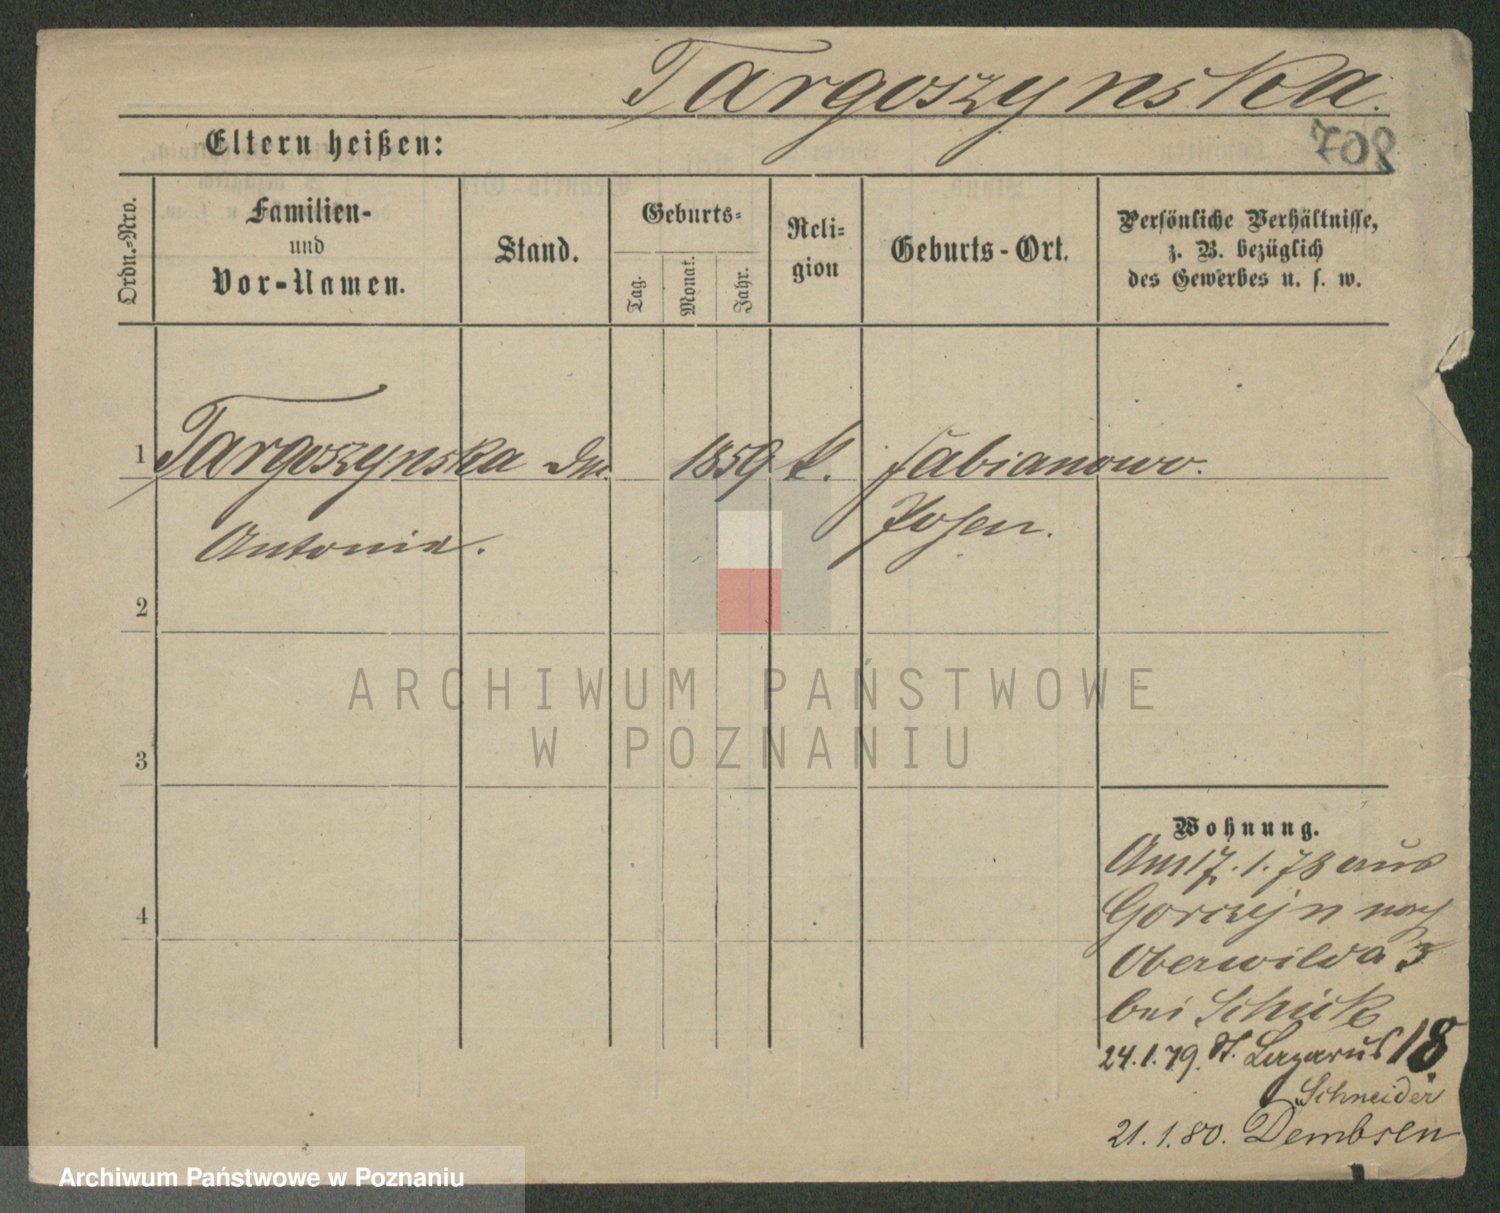 Targoszynska.
708
Eltern heißen:
Ordn.-Nro.
Familien-
und
Vor-Namen.
Stand.
Geburts-
Tag.
Monat.
Jahr.
Reli-
gion
Geburts-Ort.
Persönliche Verhältnisse,
z. B. bezüglich
des Gewerbes u. s. w.
1 Targoszynska 1859 k. Fabianowo.
Antonia. Posen.
2
3
4
Wohnung.
Am 17.1.78 aus
Gorczyn nach
Oberwilda 3
bei Schick
24.1.79. St. Lazarus 18.
Schneider
21.1.80. Dembsen
ARCHIWUM PAŃSTWOWE
W POZNANIU
Archiwum Państwowe w Poznaniu